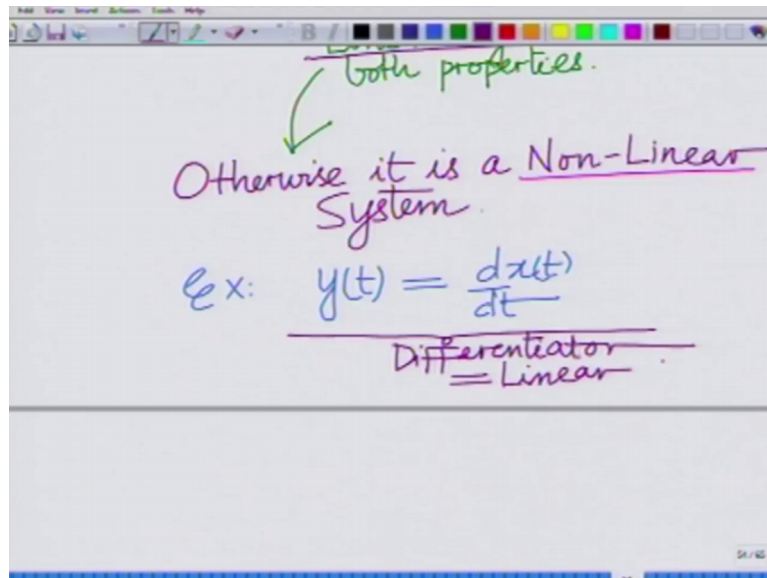 both properties.
Otherwise it is a Non-Linear
System.
Ex: y(t) = dx(t)/dt
Differentiator
= Linear